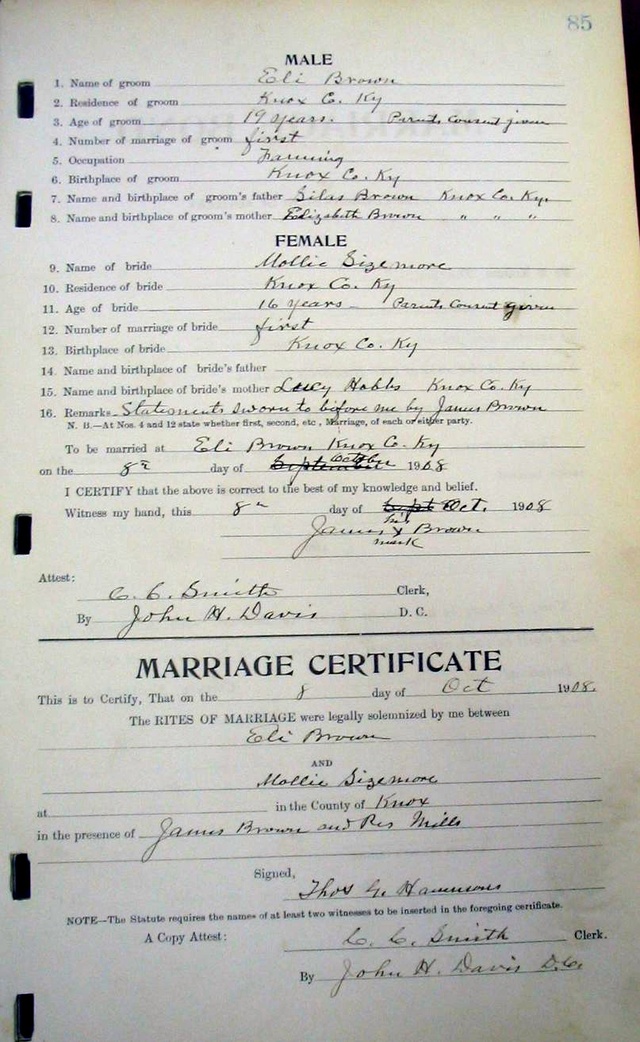 85
MALE
1. Name of groom Eli Brown
2. Residence of groom Knox Co. Ky
3. Age of groom 19 years. Parents Consent given
4. Number of marriage of groom first
5. Occupation Farming
6. Birthplace of groom Knox Co. Ky
7. Name and birthplace of groom's father Silas Brown Knox Co. Ky.
8. Name and birthplace of groom's mother Elizabeth Brown " " "
FEMALE
9. Name of bride Mollie Sizemore
10. Residence of bride Knox Co. Ky
11. Age of bride 16 years – Parents Consent given
12. Number of marriage of bride first
13. Birthplace of bride Knox Co. Ky
14. Name and birthplace of bride's father
15. Name and birthplace of bride's mother Lucy Hobbs Knox Co. Ky
16. Remarks Statements sworn to before me by James Brown
N. B.—At Nos. 4 and 12 state whether first, second, etc., Marriage, of each or either party.
To be married at Eli Brown Knox Co. Ky
on the 8th day of September October 1908
I CERTIFY that the above is correct to the best of my knowledge and belief.
Witness my hand, this 8th day of Sept Oct. 1908
his
James X Brown
mark
Attest:
C. C. Smith Clerk,
By John H. Davis D. C.
MARRIAGE CERTIFICATE
This is to Certify, That on the 8 day of Oct 1908.
The RITES OF MARRIAGE were legally solemnized by me between
Eli Brown
AND
Mollie Sizemore
at in the County of Knox
in the presence of James Brown and Mills
Signed,
Thos G. Hammons
NOTE—The Statute requires the names of at least two witnesses to be inserted in the foregoing certificate.
A Copy Attest: C. C. Smith Clerk.
By John H. Davis D.C.